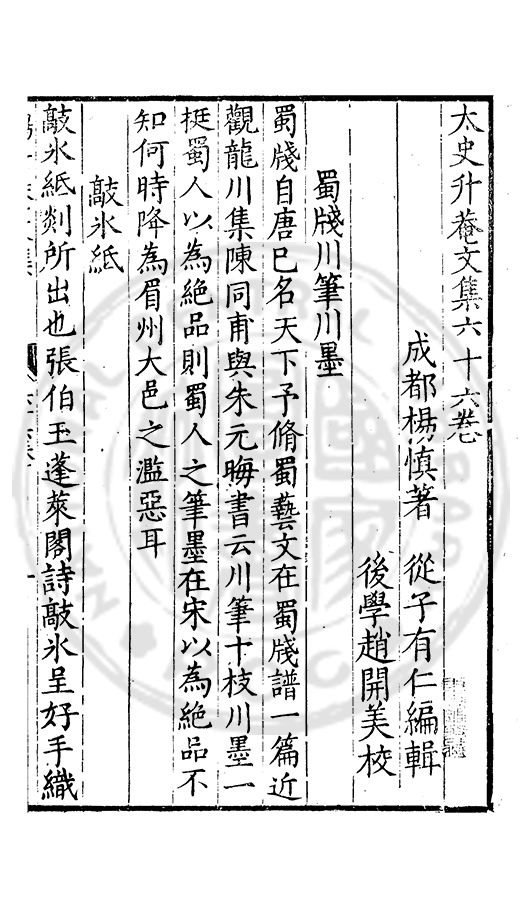 太史升菴文集六十六卷
成都楊慎著 從子有仁編輯
後學趙開美校
蜀牋川筆川墨
蜀牋自唐已名天下予脩蜀藝文在蜀牋譜一篇近
觀龍川集陳同甫與朱元晦書云川筆十枝川墨一
挺蜀人以為絕品則蜀人之筆墨在宋以為絕品不
知何時降為眉州大邑之濫惡耳
敲氷紙
敲氷紙剡所出也張伯玉蓬萊閣詩敲氷呈好手織